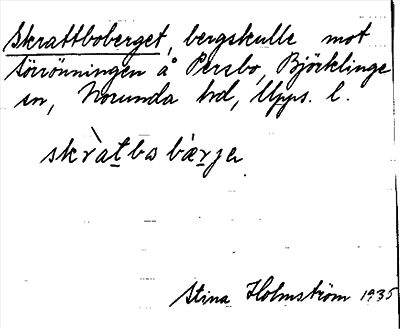 Skrattboberget, bergskulle mot
Sörrönningen å Persbo, Björklinge
sn, Norunda hd, Upps. l.
skràt̲bo bæ̀r̲ja
Stina Holmström 1935